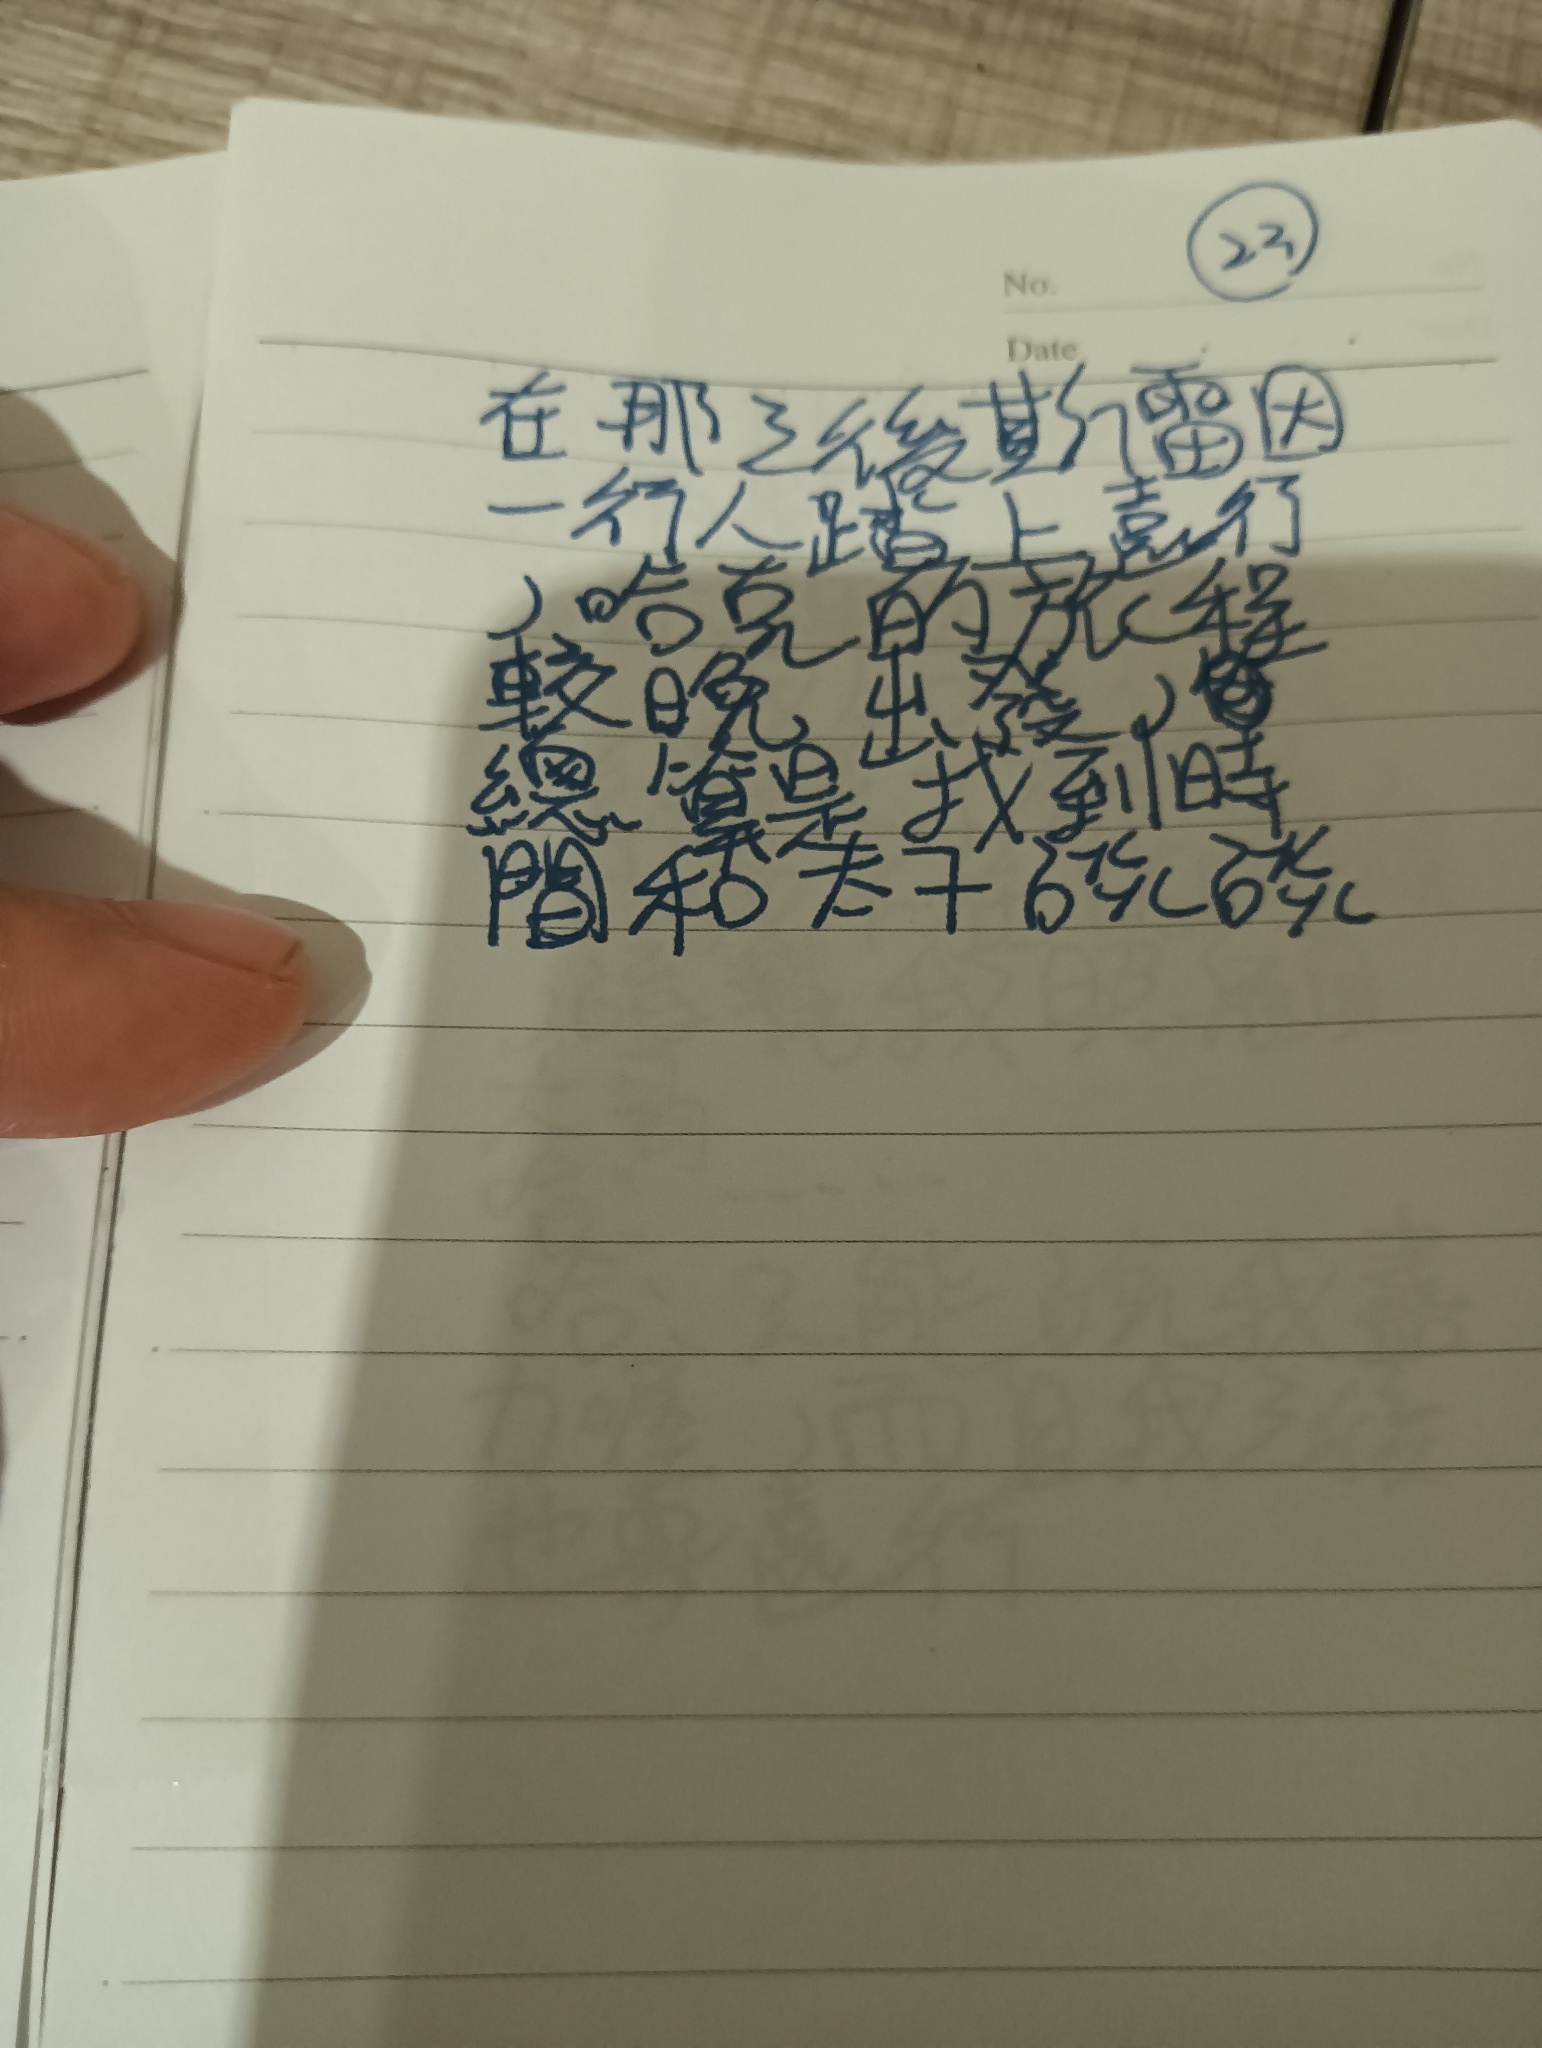 23
No.
Date
在那之後斯雷因
一行人踏上意行
，哈克的旅程
較晚出發，
總算是找到時
間和夫子硫硫